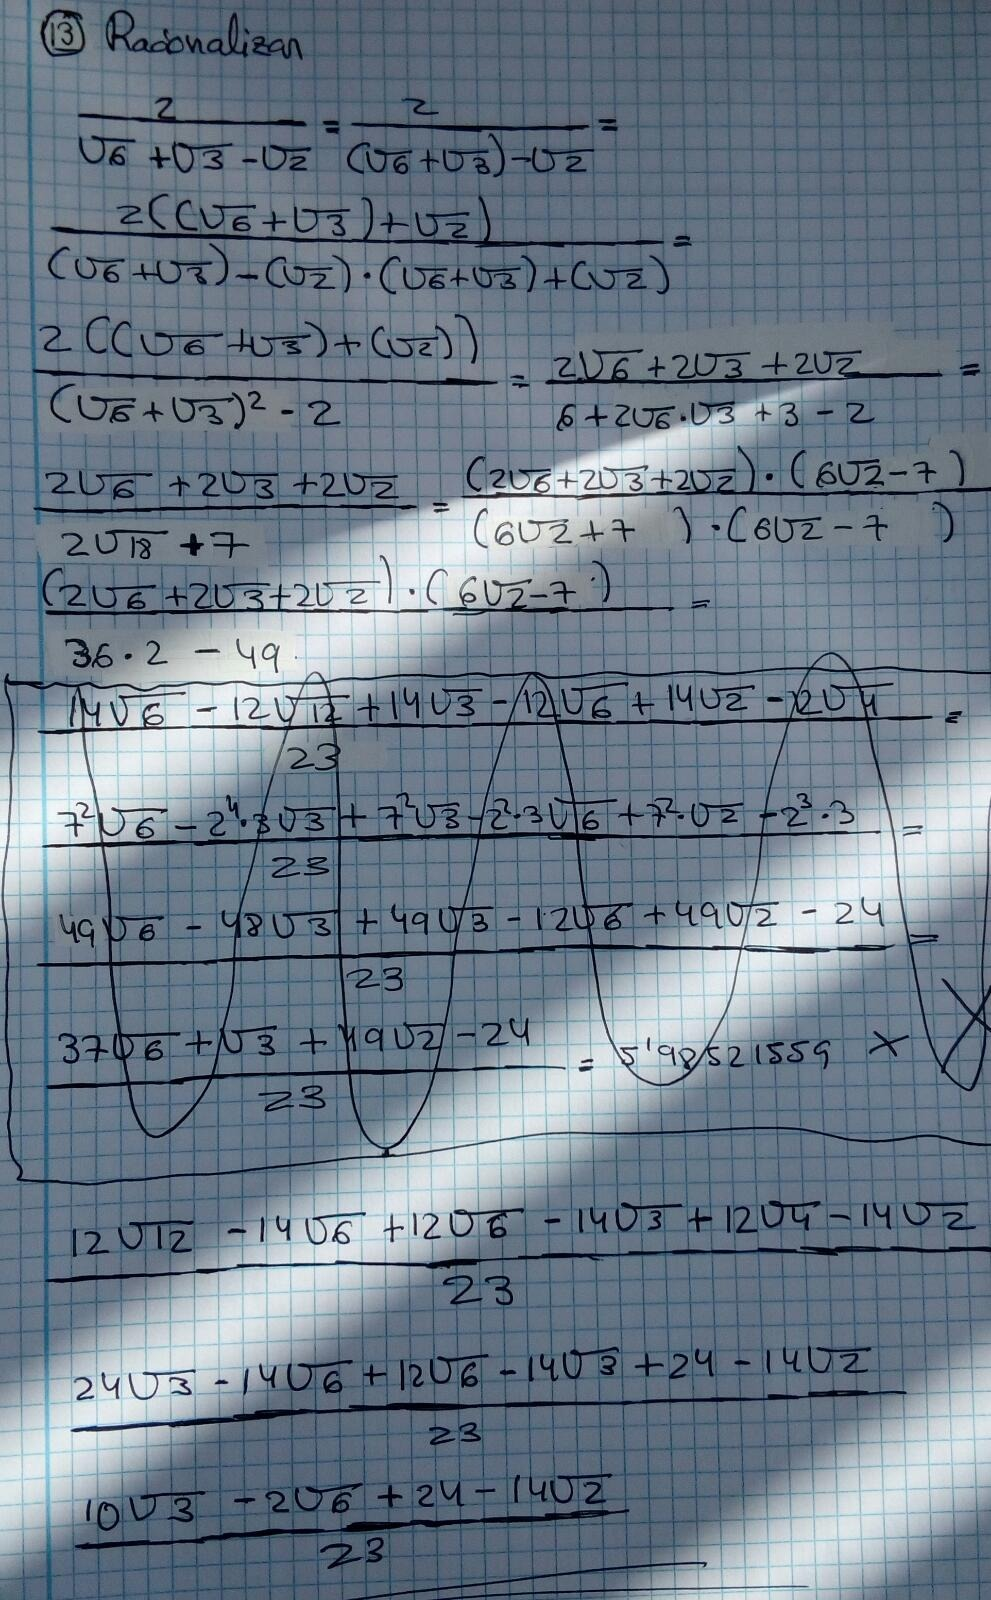 13 Racionalizar
2 / (√6 + √3 - √2) = 2 / ((√6 + √3) - √2) =
2((√6 + √3) + √2) / ((√6 + √3) - (√2) · (√6 + √3) + (√2)) =
2((√6 + √3) + (√2)) / ((√6 + √3)² - 2) = (2√6 + 2√3 + 2√2) / (6 + 2√6·√3 + 3 - 2) =
(2√6 + 2√3 + 2√2) / (2√18 + 7) = (2√6 + 2√3 + 2√2) · (6√2 - 7) / ((6√2 + 7) · (6√2 - 7))
(2√6 + 2√3 + 2√2) · (6√2 - 7) / (36·2 - 49) =
(14√6 - 12√12 + 14√3 - 12√6 + 14√2 - 12√4) / 23 =
(7²√6 - 2⁴·3√3 + 7²√3 - 2²·3√6 + 7²·√2 - 2³·3) / 23 =
(49√6 - 48√3 + 49√3 - 12√6 + 49√2 - 24) / 23 =
(37√6 + √3 + 49√2 - 24) / 23 = 5'98521559 ×
(12√12 - 14√6 + 12√6 - 14√3 + 12√4 - 14√2) / 23
(24√3 - 14√6 + 12√6 - 14√3 + 24 - 14√2) / 23
(10√3 - 2√6 + 24 - 14√2) / 23